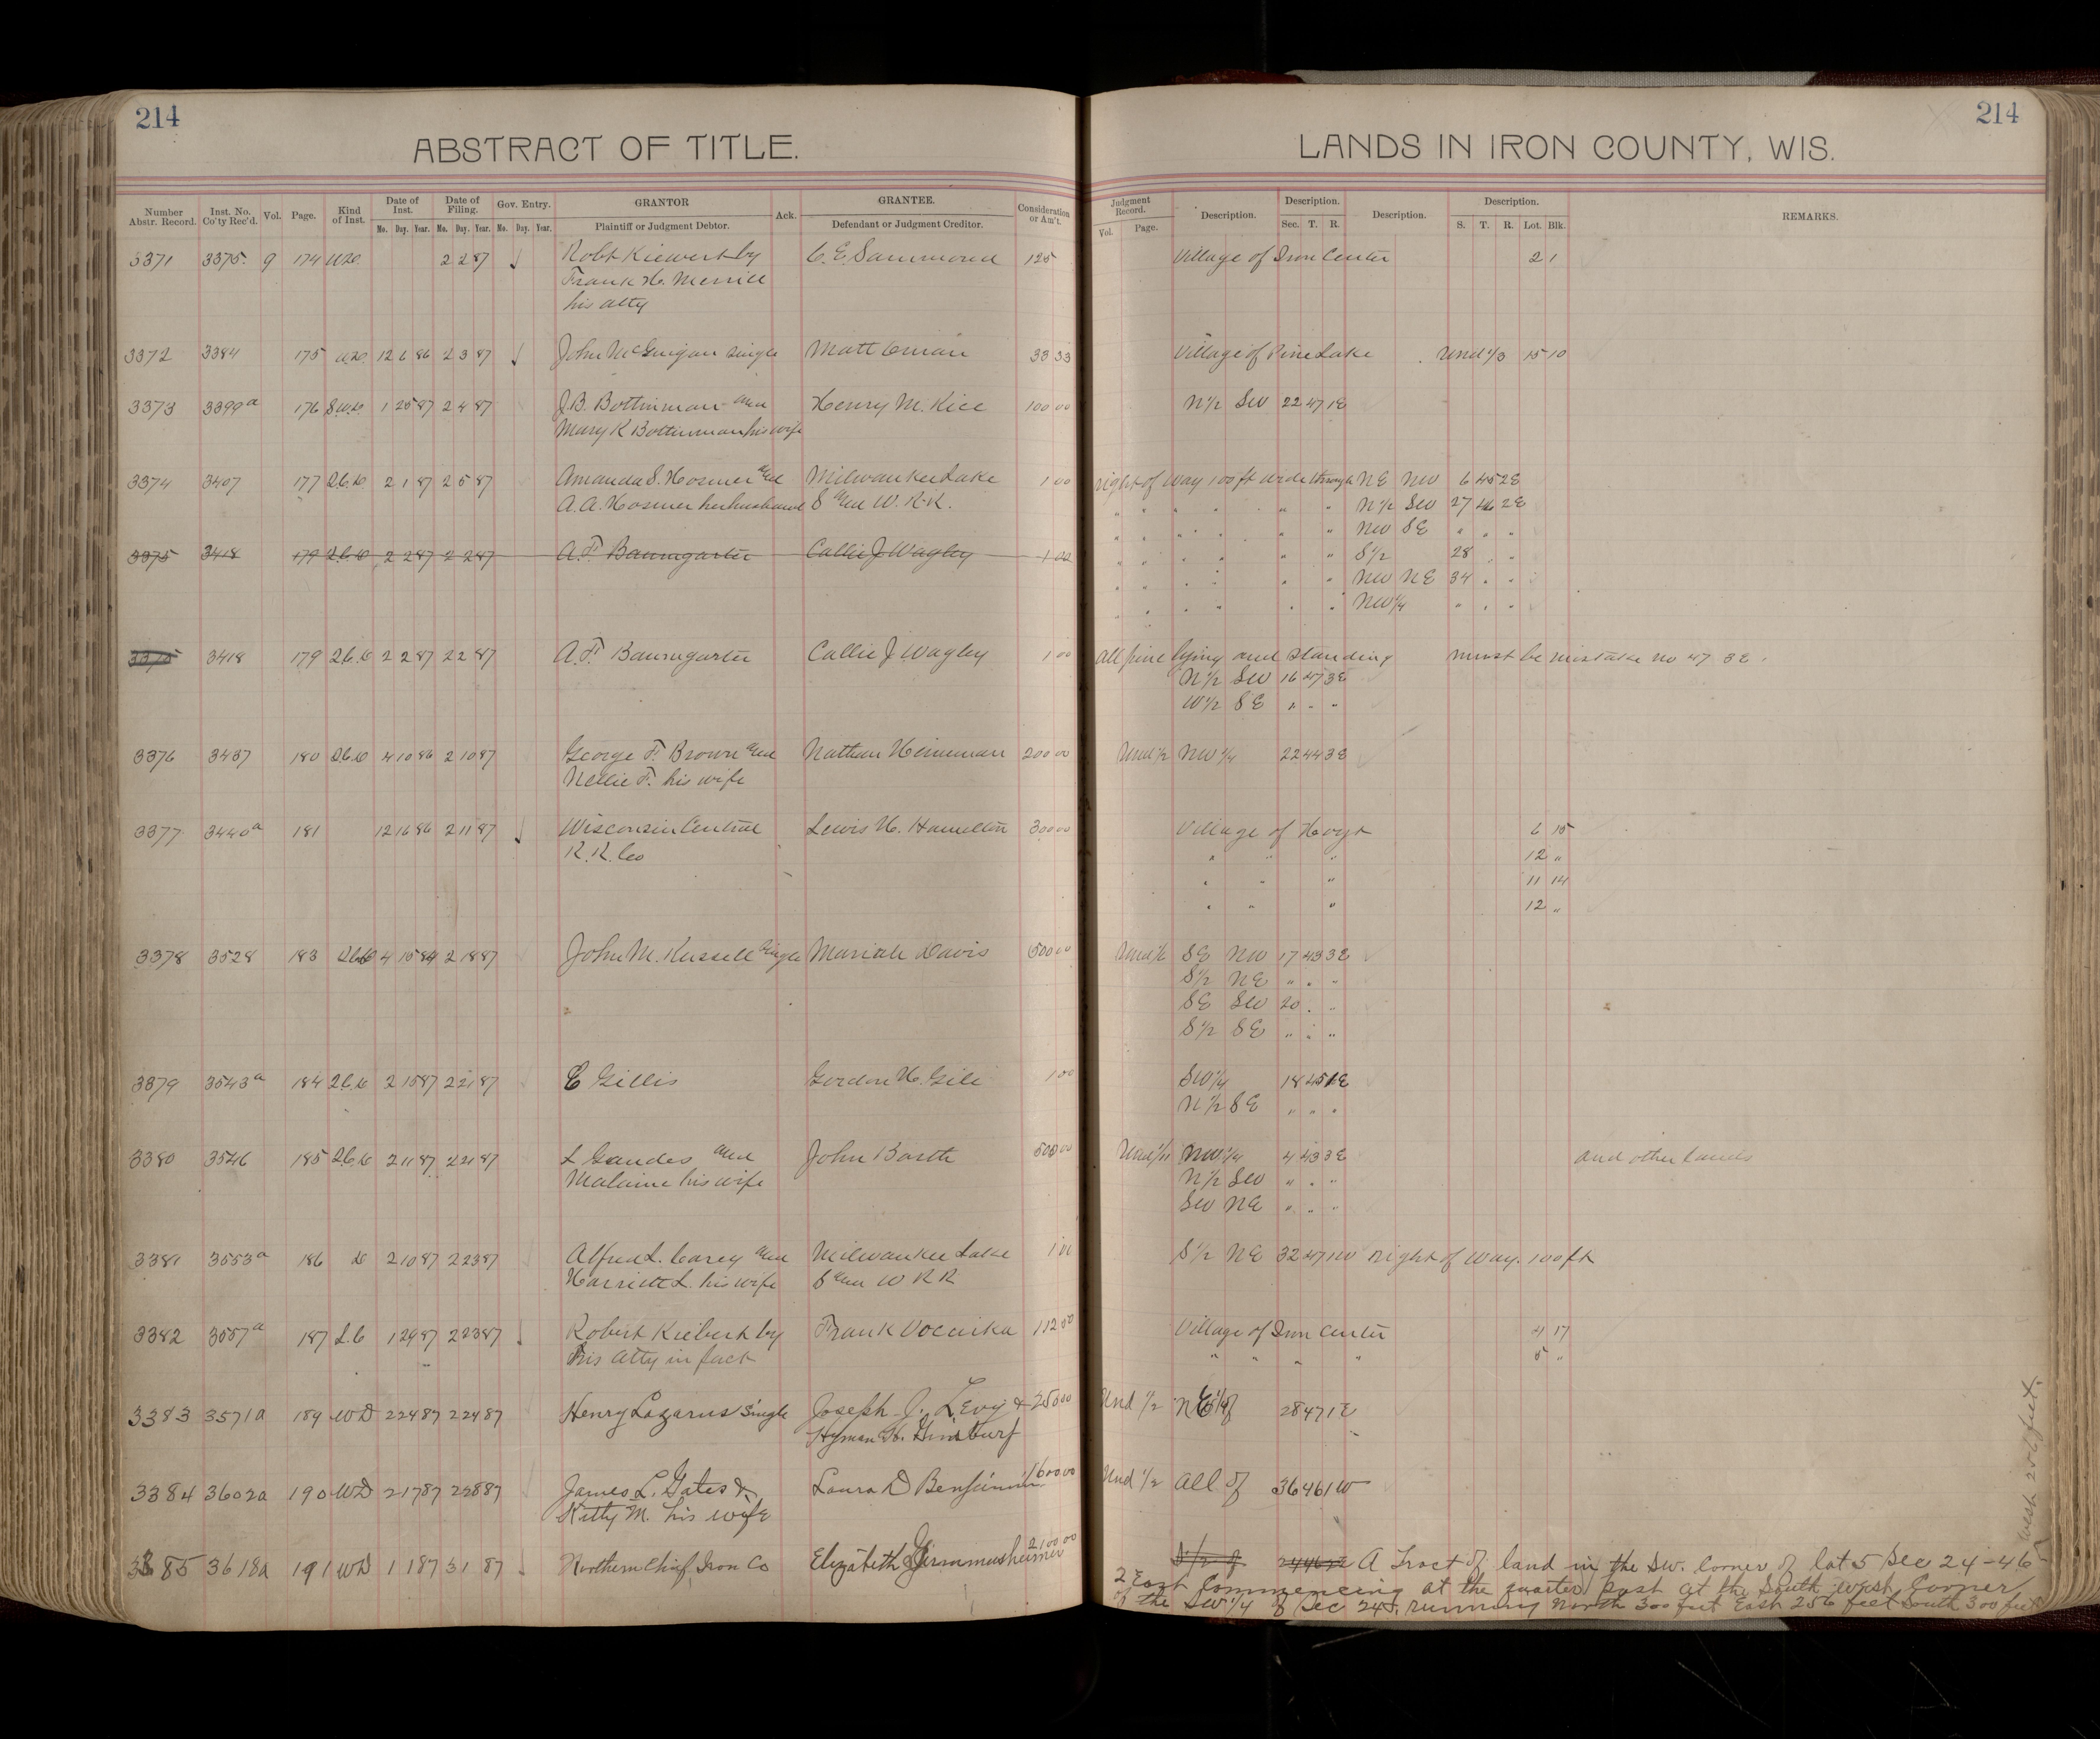 214
ABSTRACT OF TITLE.
Number Abstr. Record. Inst. No. Co'ty Rec'd. Vol. Page. Kind of Inst. Date of Inst. Mo. Day. Year. Date of Filing. Mo. Day. Year. Gov. Entry. Mo. Day. Year. GRANTOR Plaintiff or Judgment Debtor. Ack. GRANTEE. Defendant or Judgment Creditor. Consideration or Am't.
3371 3375. 9 174 WD. 2 2 87 Robt Kiewert by C. E. Sammond 125
Frank H. Merrill
his atty
3372 3384 175 WD 12 6 86 2 3 87 John McGuigan single Matt 33 33
3373 3399a 176 S.W.D 1 25 87 2 4 87 J.B. Bottinman and Henry M. Rice 100 00
Mary K Bottinman his wife
3374 3407 177 Q.C.D 2 1 87 2 5 87 Amanda S. Hosmer and Milwaukee Lake 1 00
A. A. Hosmer her husband S and W. R.R.
3375 3418 179 Q.C.D 2 2 87 2 2 87 A. F. Baumgarter Callie J Wagley 1 00
3375 3418 179 Q.C.D 2 2 87 2 2 87 A. F. Baumgarter Callie J Wagley 1 00
3376 3437 180 Q.C.D 4 10 86 2 10 87 George F. Brown and Nathan Heineman 200 00
Nellie F. his wife
3377 3440a 181 12 16 86 2 11 87 Wisconsin Central Lewis H. Hamelton 300 00
R. R. Co
3378 3528 183 QCD 4 15 84 2 18 87 John M. Russell Single Mariah Davis 500 00
3379 3543a 184 Q.C.D 2 15 87 2 21 87 C Gillis Gordon H. Gile 1 00
3380 3546 185 Q.C.D 2 11 87 2 21 87 L Gaudes and John Barth 500 00
his wife
3381 3553a 186 D 2 10 87 2 23 87 Alfred L. Carey and Milwaukee Lake 1 00
Harriett L. his wife S and W R R
3382 3557a 187 L.C 1 29 87 2 23 87 Robert Kiebert by Frank Vocaika 112 50
his Atty in fact
3383 3571a 189 WD 2 24 87 2 24 87 Henry Lazarus Single Joseph J. Levy & 250 00
Hyman H. Ginsburf
3384 3602a 190 WD 2 17 87 2 28 87 James L. Gates & Laura D Benjamin 1600 00
Kitty M. his wife
3385 3618a 191 WD 1 1 87 3 1 87 Northern Chief Iron Co Elizabeth 2100 00
214
LANDS IN IRON COUNTY, WIS.
Judgment Record. Vol. Page. Description. Description. Sec. T. R. Description. Description. S. T. R. Lot. Blk. REMARKS.
Village of Iron Center 2 1
Village of Pine Lake Und 1/3 15 10
N1/2 SW 22 47 1E
right of way 100 ft wide through NE NW 6 45 2E
" " " " " " " N1/2 SW 27 46 2E
" " " " " " " NW SE " " "
" " " " " " S1/2 28 " "
" " " " " " NW NE 34 " "
" " " " " " NW1/4 " " "
All pine lying and standing must be mistake no 47 3E.
N1/2 SW 16 47 3E
W1/2 SE " " "
Und 1/2 NW1/4 22 44 3E
Village of Hoyt 6 15
" " " 12 "
" " " 11 14
" " " 12 "
Und 1/6 SE NW 17 43 3E
S1/2 NE " " "
SE SW 20 " "
S1/2 SE " " "
SW1/4 18 45 1E
N1/2 SE " " "
Und 1/11 NW1/4 4 43 3E and other lands
N1/2 SW " " "
SW NE " " "
S1/2 NE 32 47 1W right of way. 100 ft
Village of Iron Center 4 17
" " " " 5 "
Und 1/2 NE1/4 of 28 47 1E
Und 1/2 All of 36 46 1W
S1/2 of 24 46 2E A Tract of land in the SW. Corner of lot 5 Sec 24-46-
2 East Commencing at the quarter post at the South west Corner
of the SW1/4 of Sec 24, running North 300 feet East 256 feet South 300 feet
West 256 feet.